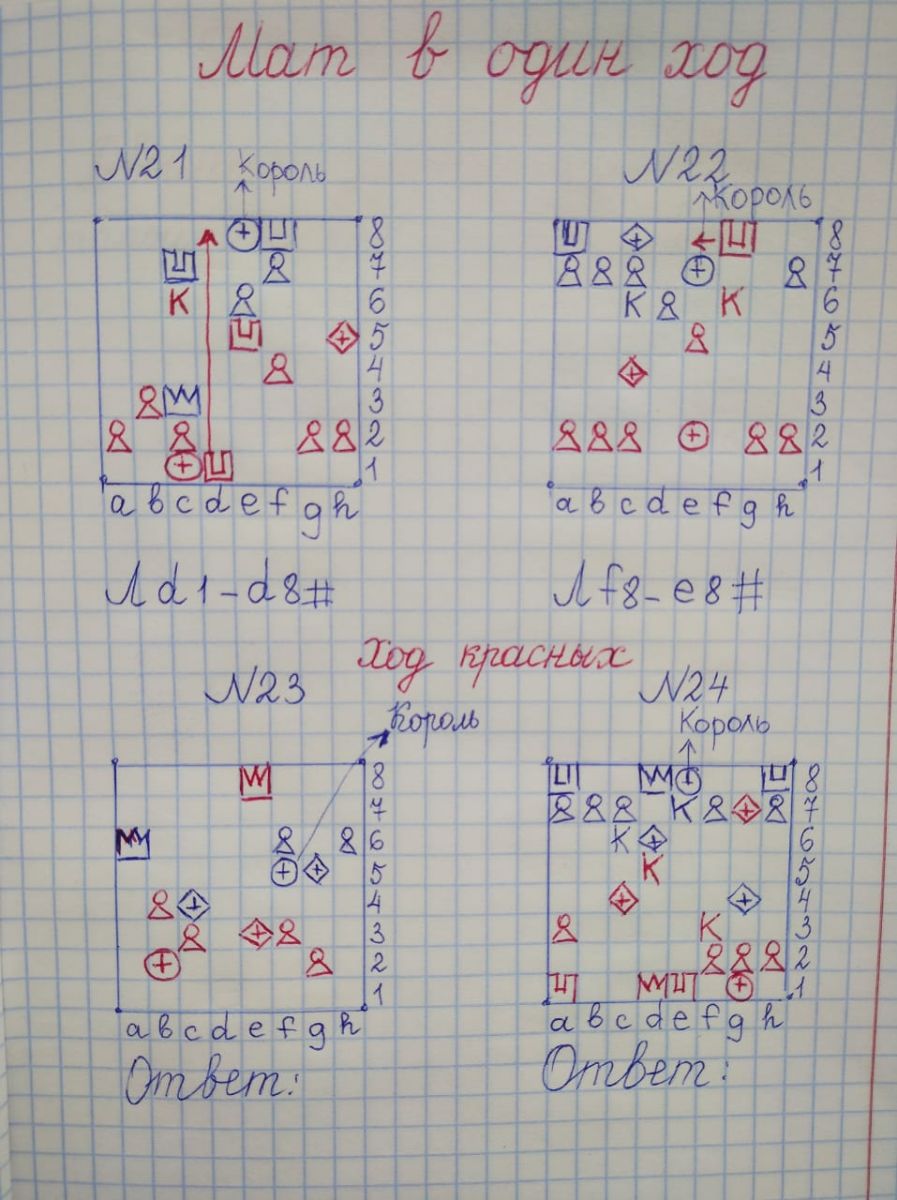 Мат в один ход
N21
N22
Король
Король
8
7
6
K
5
4
3
2
1
a b c d e f g h
8
7
K K
6
5
4
3
2
1
a b c d e f g h
Л d1-d8#
Л f8-e8#
Ход красных
N23
N24
Король
Король
8
7
6
5
4
3
2
1
a b c d e f g h
8
K
7
K
6
K
5
4
K
3
2
1
a b c d e f g h
Ответ:
Ответ: